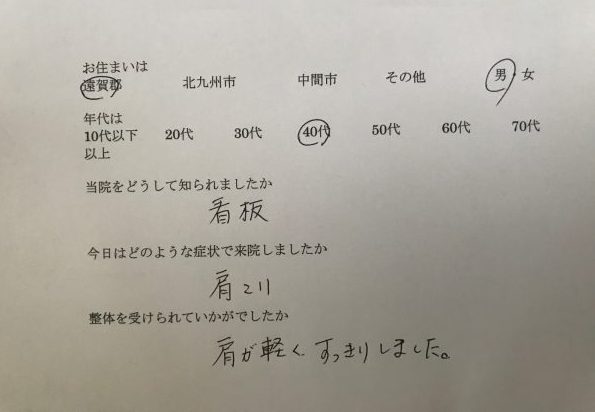 お住まいは
遠賀郡 北九州市 中間市 その他 男・女
年代は
10代以下 20代 30代 40代 50代 60代 70代
以上
当院をどうして知られましたか
看板
今日はどのような症状で来院しましたか
肩こり
整体を受けられていかがでしたか
肩が軽く すっきりしました。